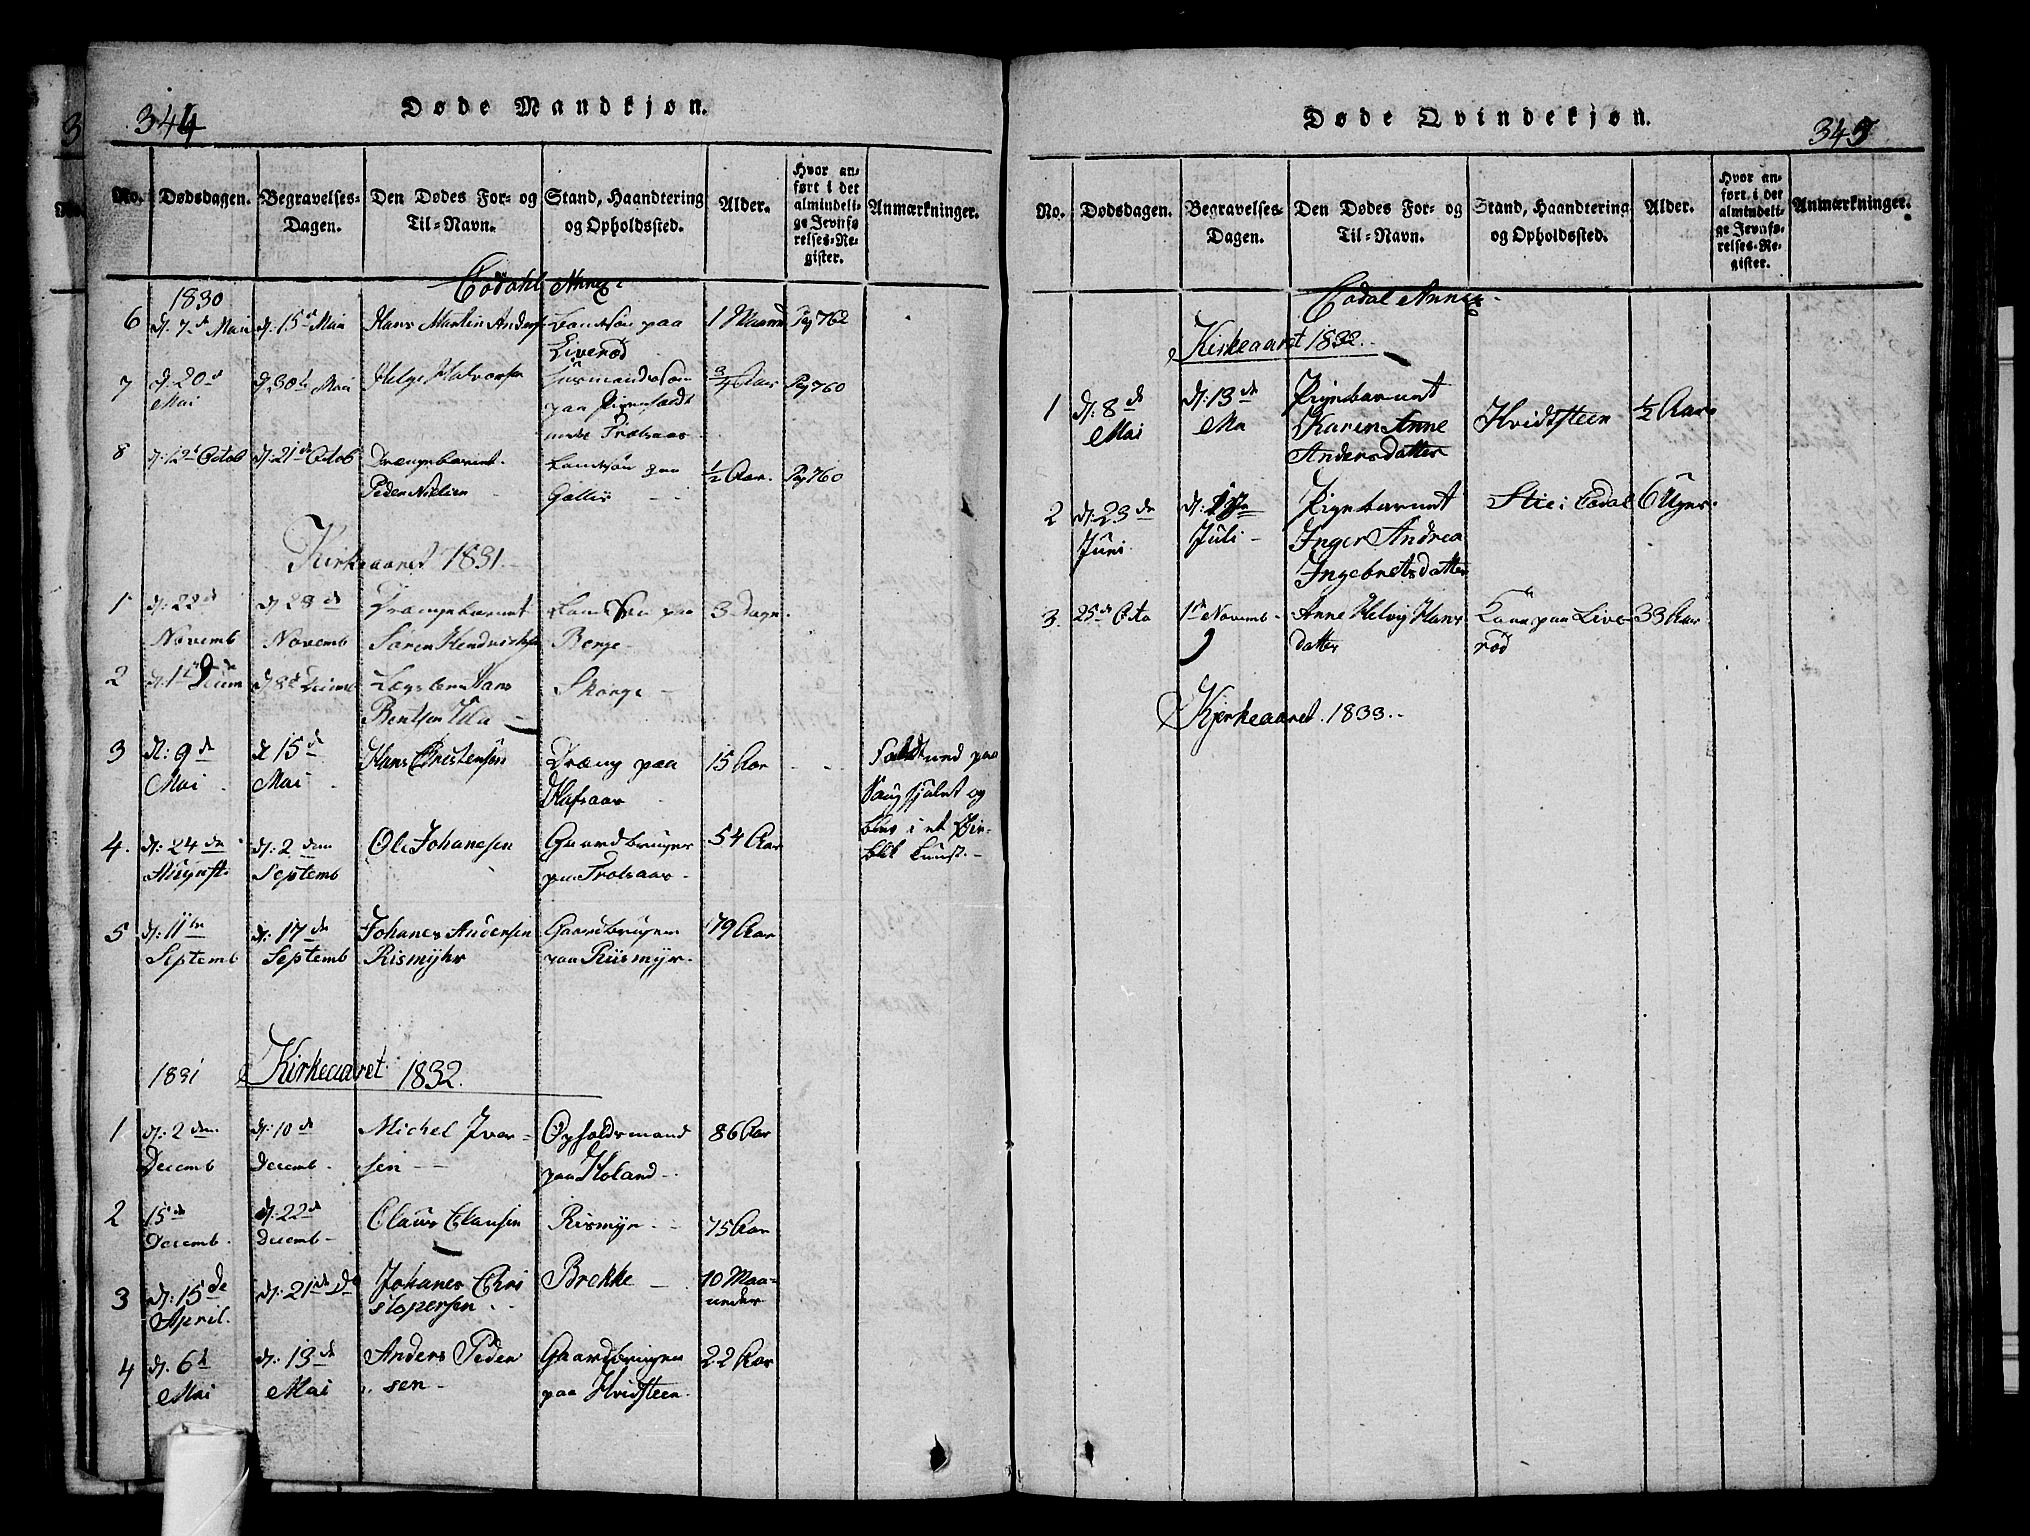 344
Døde Mandkjøn.
No. Dødsdagen. Begravelses-Dagen. Den Dødes For- og Til-Navn. Stand, Haandtering og Opholdssted. Alder. Hvor anført i det almindelige Jevnførelses-Register. Anmærkninger.
Eødahl Annex
1830
6 d: 7de Mai d: 15de Mai Hans Martin Anders Landsøn paa Liverød 1 Maaned Pag 762
7 d: 20de Mai d: 30te Mai Helge Halvorsen Huusmandssøn paa 3/4 Aar Pag 760
8 d: 12te Octob d: 21de Octob Drængebarnet Peder Nielsen Landsøn paa 1/2 Aar. Pag 760
Kirkeaaret 1831.
1 d: 22de Novemb d: 28de Novemb Drængebarnet Søren Hendrichsen paa Berge 3 Dage.
2 d: 1ste Decem d: 8de Decemb Hans Bentsen Skorge
3 d: 9de Mai d 15de Mai Hans Christensen Dræng paa Hafsaas 15 Aar Faldt ned paa og blev i et
4. d: 24de August d: 2den Septemb Ole Johanesen Gaardbruger paa Trolsaas 54 Aar
5 d: 11te Septemb d: 17de Septemb Johanes Andersen Rismyhr Gaardbruger paa Riismyr 79 Aar
1831 Kirkeaaret 1832.
1 d: 2den Decemb d: 10de Decemb Michel Iversen Opholdsmand paa Holand 86 Aar
2 15de Decemb. d: 22de Decemb Olaus Clausen Rismyr 75 Aar
3 d: 15de April. d: 21de Do Johanes Christopersen Brekke 10 Maaneder
4 d. 6te Mai d: 13de Mai Anders Pedersen Gaardbruger paa Hvidsteen. 22 Aar
345
Døde Qvindekjøn.
No. Dødsdagen. Begravelses-Dagen. Den Dødes For- og Til-Navn. Stand, Haandtering og Opholdssted. Alder. Hvor anført i det almindelige Jevnførelses-Register. Anmærkninger.
Eødal Annex
Kirkeaaret 1832.
1 d: 8de Mai d: 13de Ma Pigebarnet Karen Anne Andersdatter Hvidsteen 1/2 Aar
2 d: 23de Juni. d: 1ste Juli Pigebarnet Inger Andrea Ingebretsdatter Stie i Eødal 6 Uger.
3. 25de Octo 1ste Novemb Anne Helvig Hansdatter Kone paa Liverød 33 Aar
Kjerkeaaret. 1833.